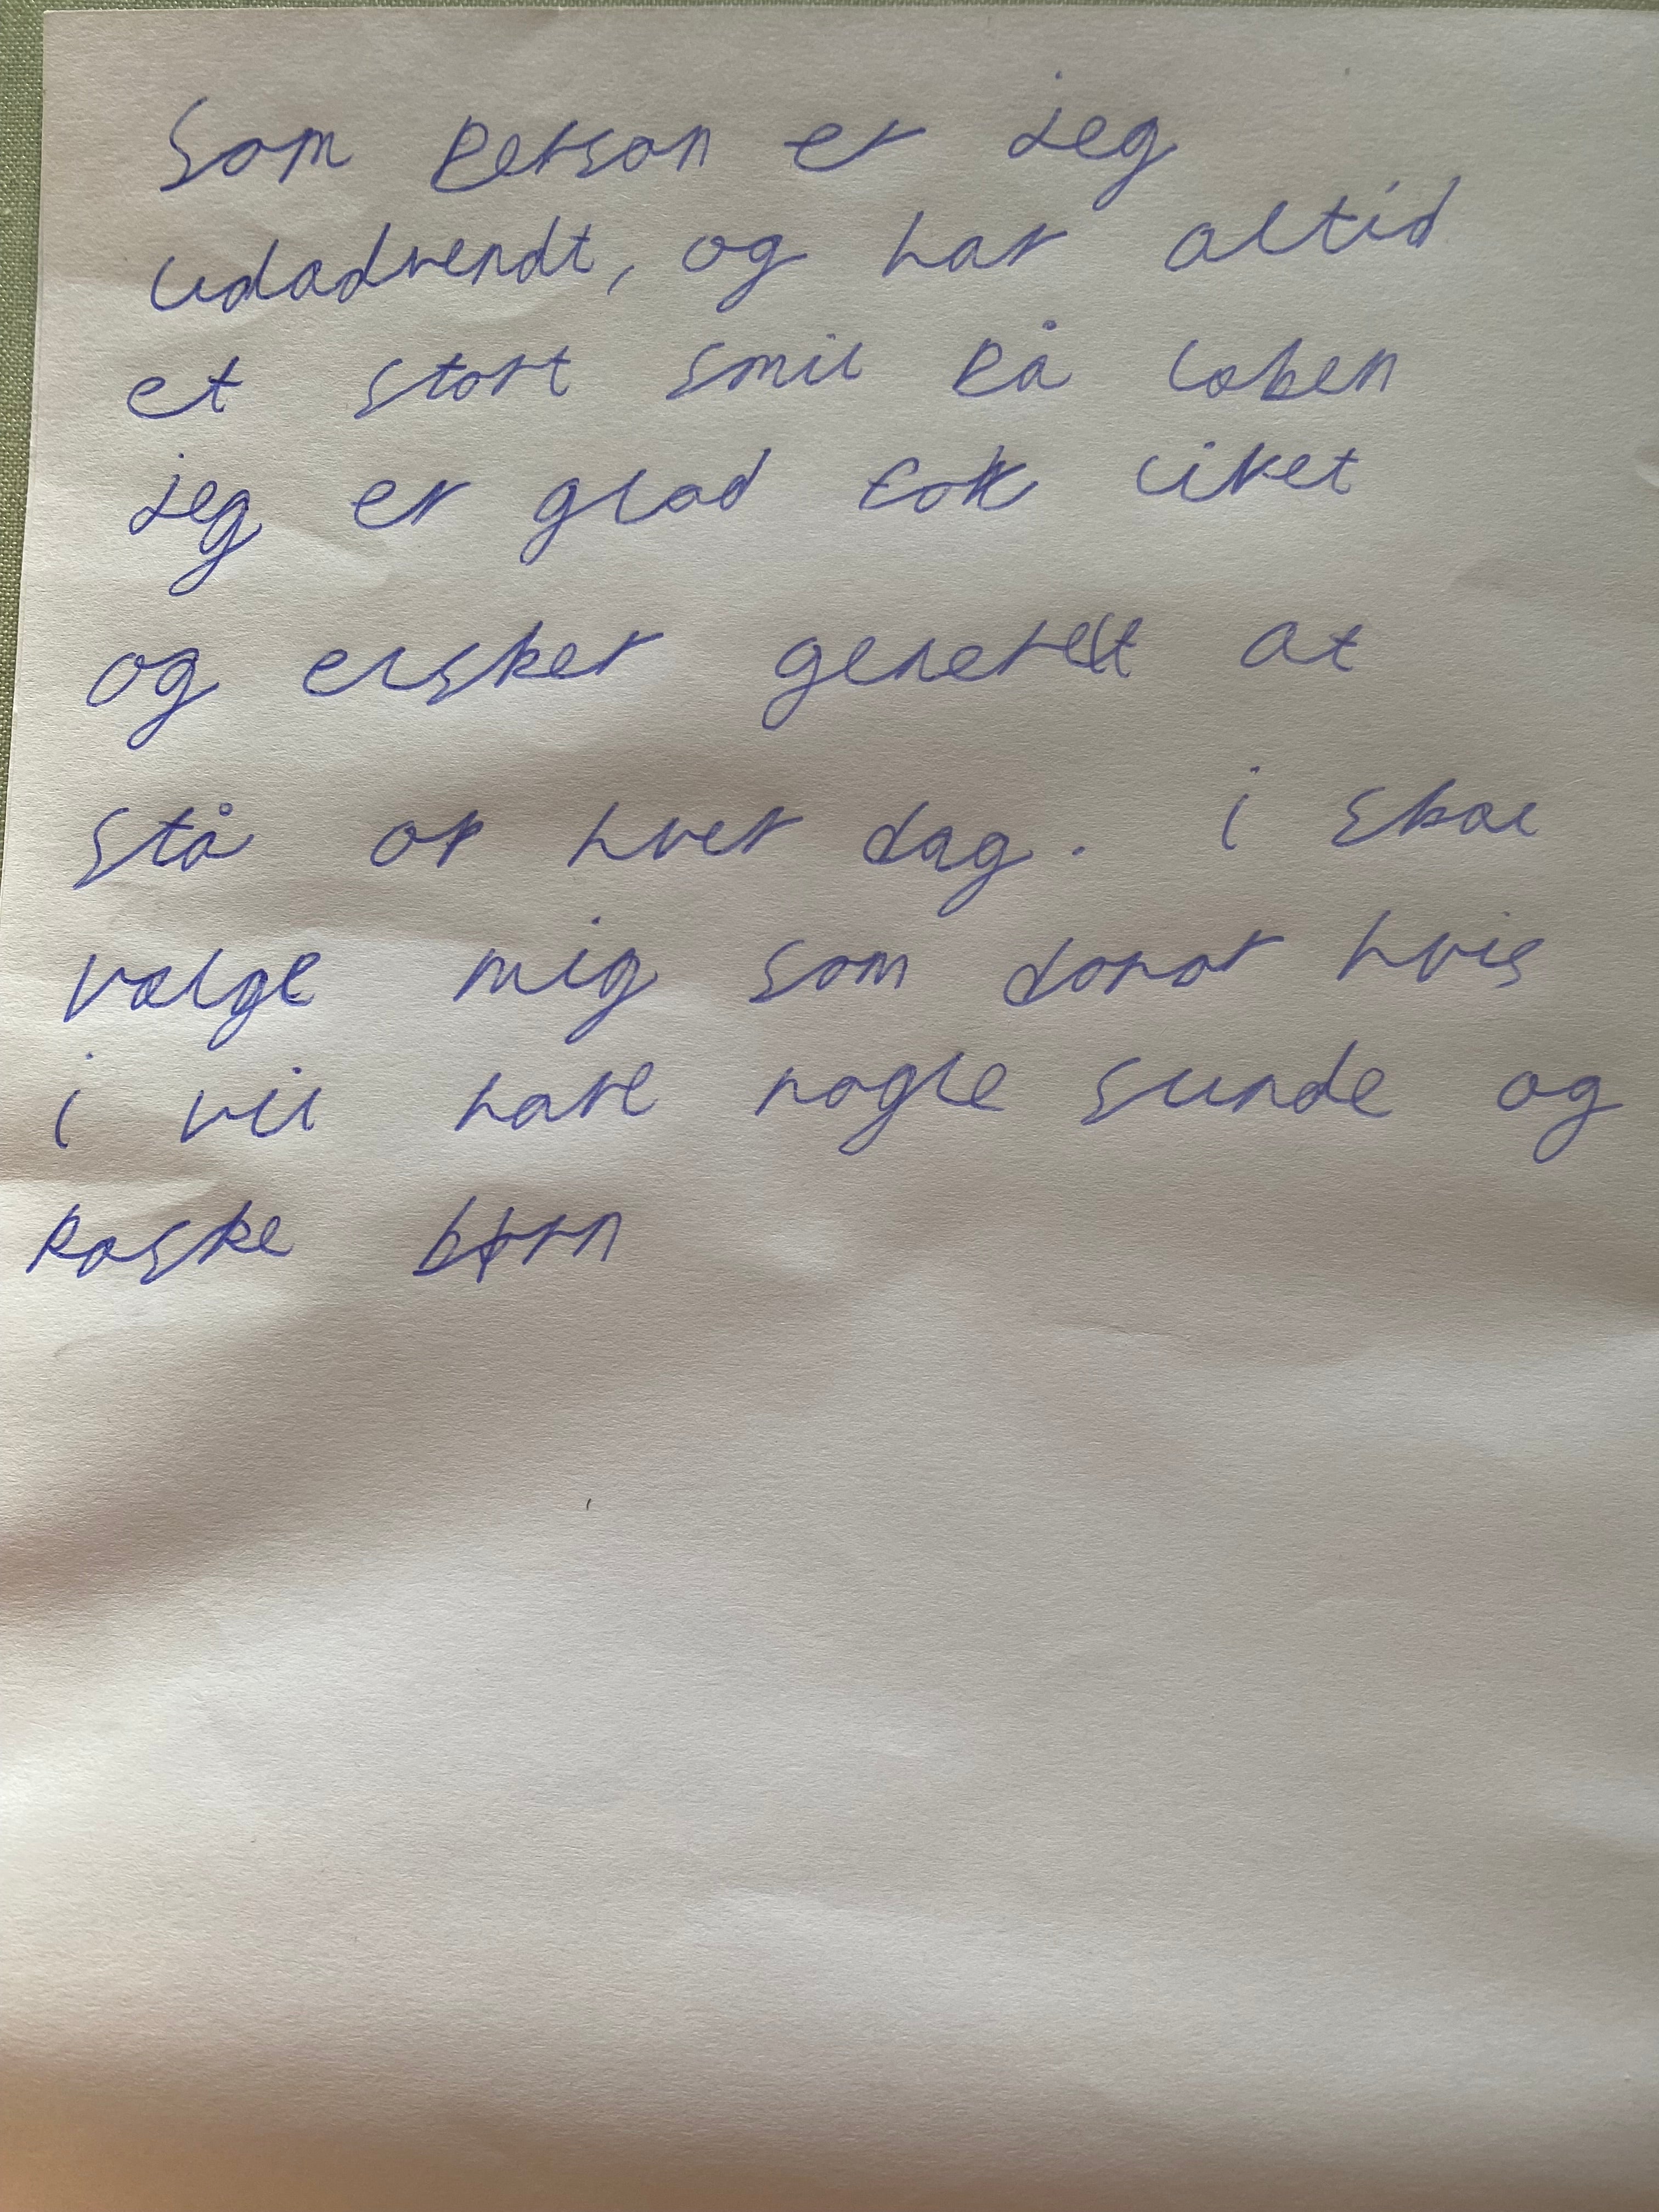 Som person er jeg
udadvendt, og har altid
et stort smil på læben
jeg er glad for livet
og elsker generelt at
stå op hver dag. i skal
vælge mig som donor hvis
i vil have nogle sunde og
raske børn